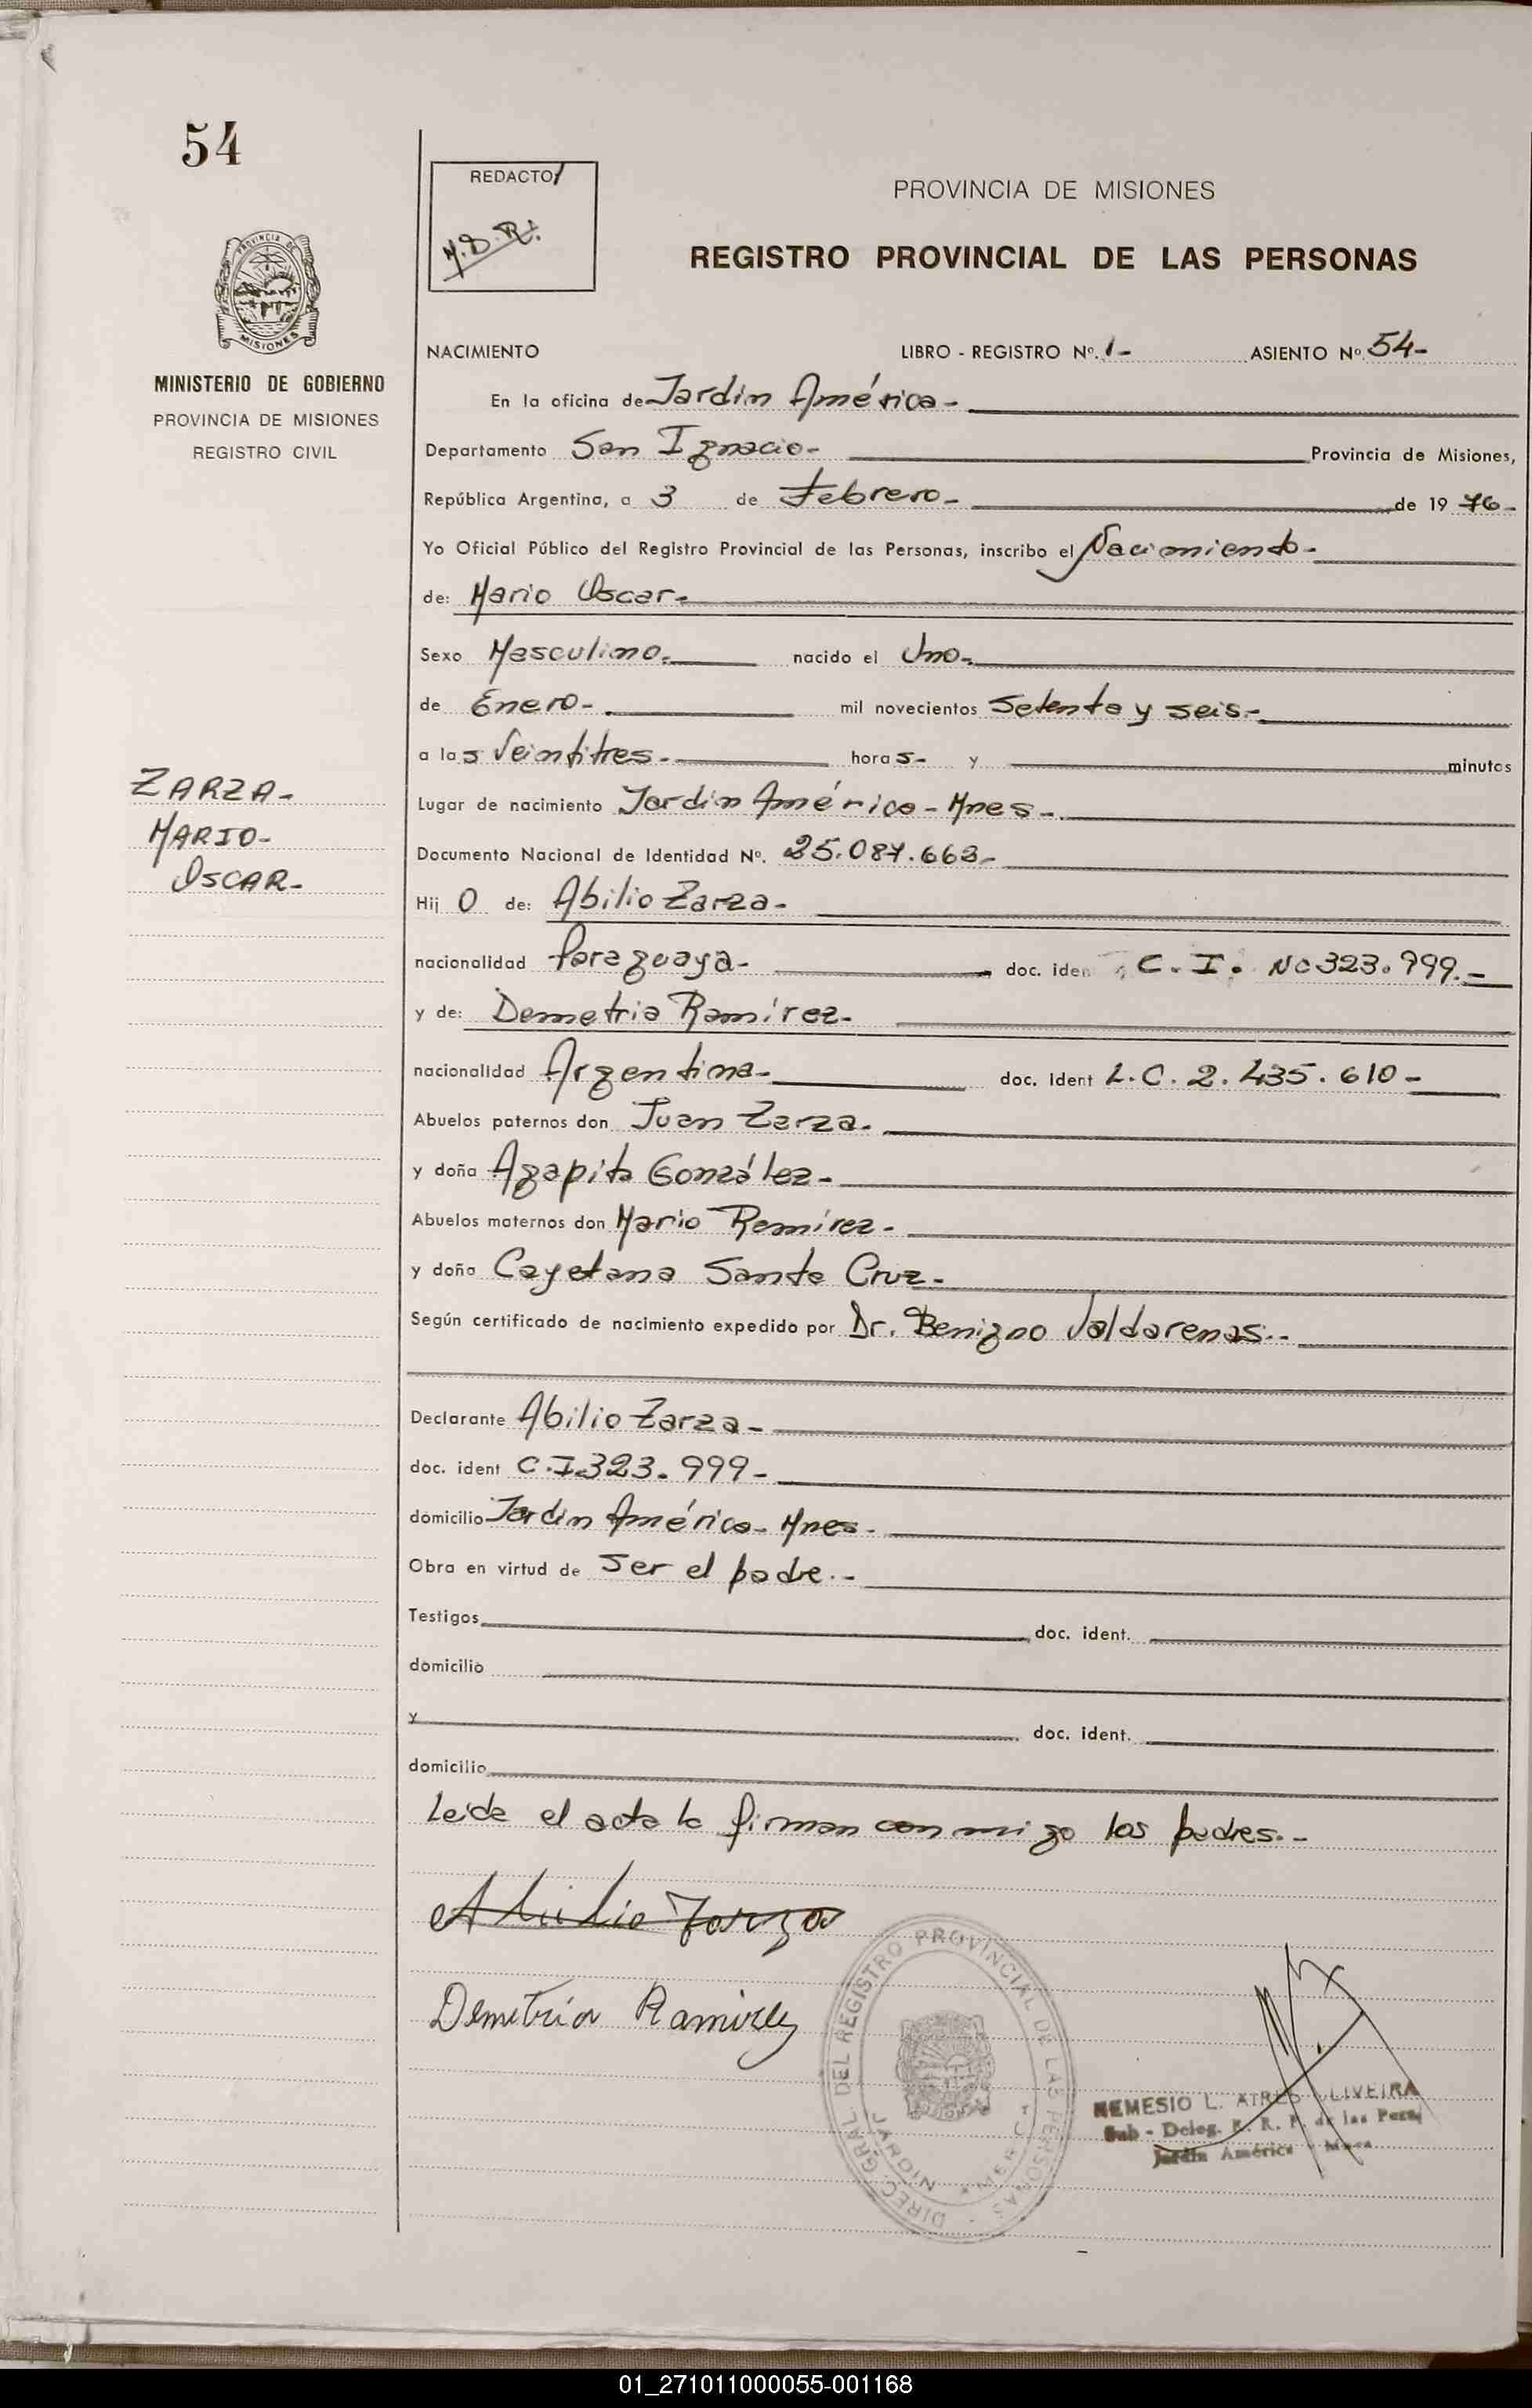 54
REDACTO
M.D.R.
PROVINCIA DE MISIONES
REGISTRO PROVINCIAL DE LAS PERSONAS
PROVINCIA DE
MISIONES
MINISTERIO DE GOBIERNO
PROVINCIA DE MISIONES
REGISTRO CIVIL
NACIMIENTO LIBRO - REGISTRO Nº. 1- ASIENTO Nº 54-
En la oficina de Jardin América-
Departamento San Ignacio- Provincia de Misiones,
República Argentina, a 3 de Febrero- de 1976-
Yo Oficial Público del Registro Provincial de las Personas, inscribo el Nacimiento-
de: Mario Oscar-
Sexo Masculino.- nacido el Uno-
de Enero- mil novecientos setenta y seis.-
a las Veintitres.- horas- y minutos
ZARZA-
MARIO-
OSCAR-
Lugar de nacimiento Jardin América - Mnes-.
Documento Nacional de Identidad Nº. 25.087.663-
Hijo de: Abilio Zarza-
nacionalidad Paraguaya- doc. iden C.I. No 323.999.-
y de: Demetria Ramírez-
nacionalidad Argentina- doc. ident L.C. 2.435.610-
Abuelos paternos don Juan Zarza-
y doña Agapita González-
Abuelos maternos don Mario Ramírez-
y doña Cayetana Santa Cruz-
Según certificado de nacimiento expedido por Dr. Benigno Valdarenas.-
Declarante Abilio Zarza-
doc. ident C.I.323.999-
domicilio Jardin América- Mnes-
Obra en virtud de ser el padre.-
Testigos doc. ident.
domicilio
y doc. ident.
domicilio
Leida el acta la firman con migo los padres.-
Abilio Zarza
Demetria Ramirez
DIREC. GRAL. DEL REGISTRO PROVINCIAL DE LAS PERSONAS
JARDIN AMERICA
NEMESIO L. AIRES OLIVEIRA
Sub - Deleg. R. R. P. de las Pers.
Jardín América - Mnes.
01_271011000055-001168